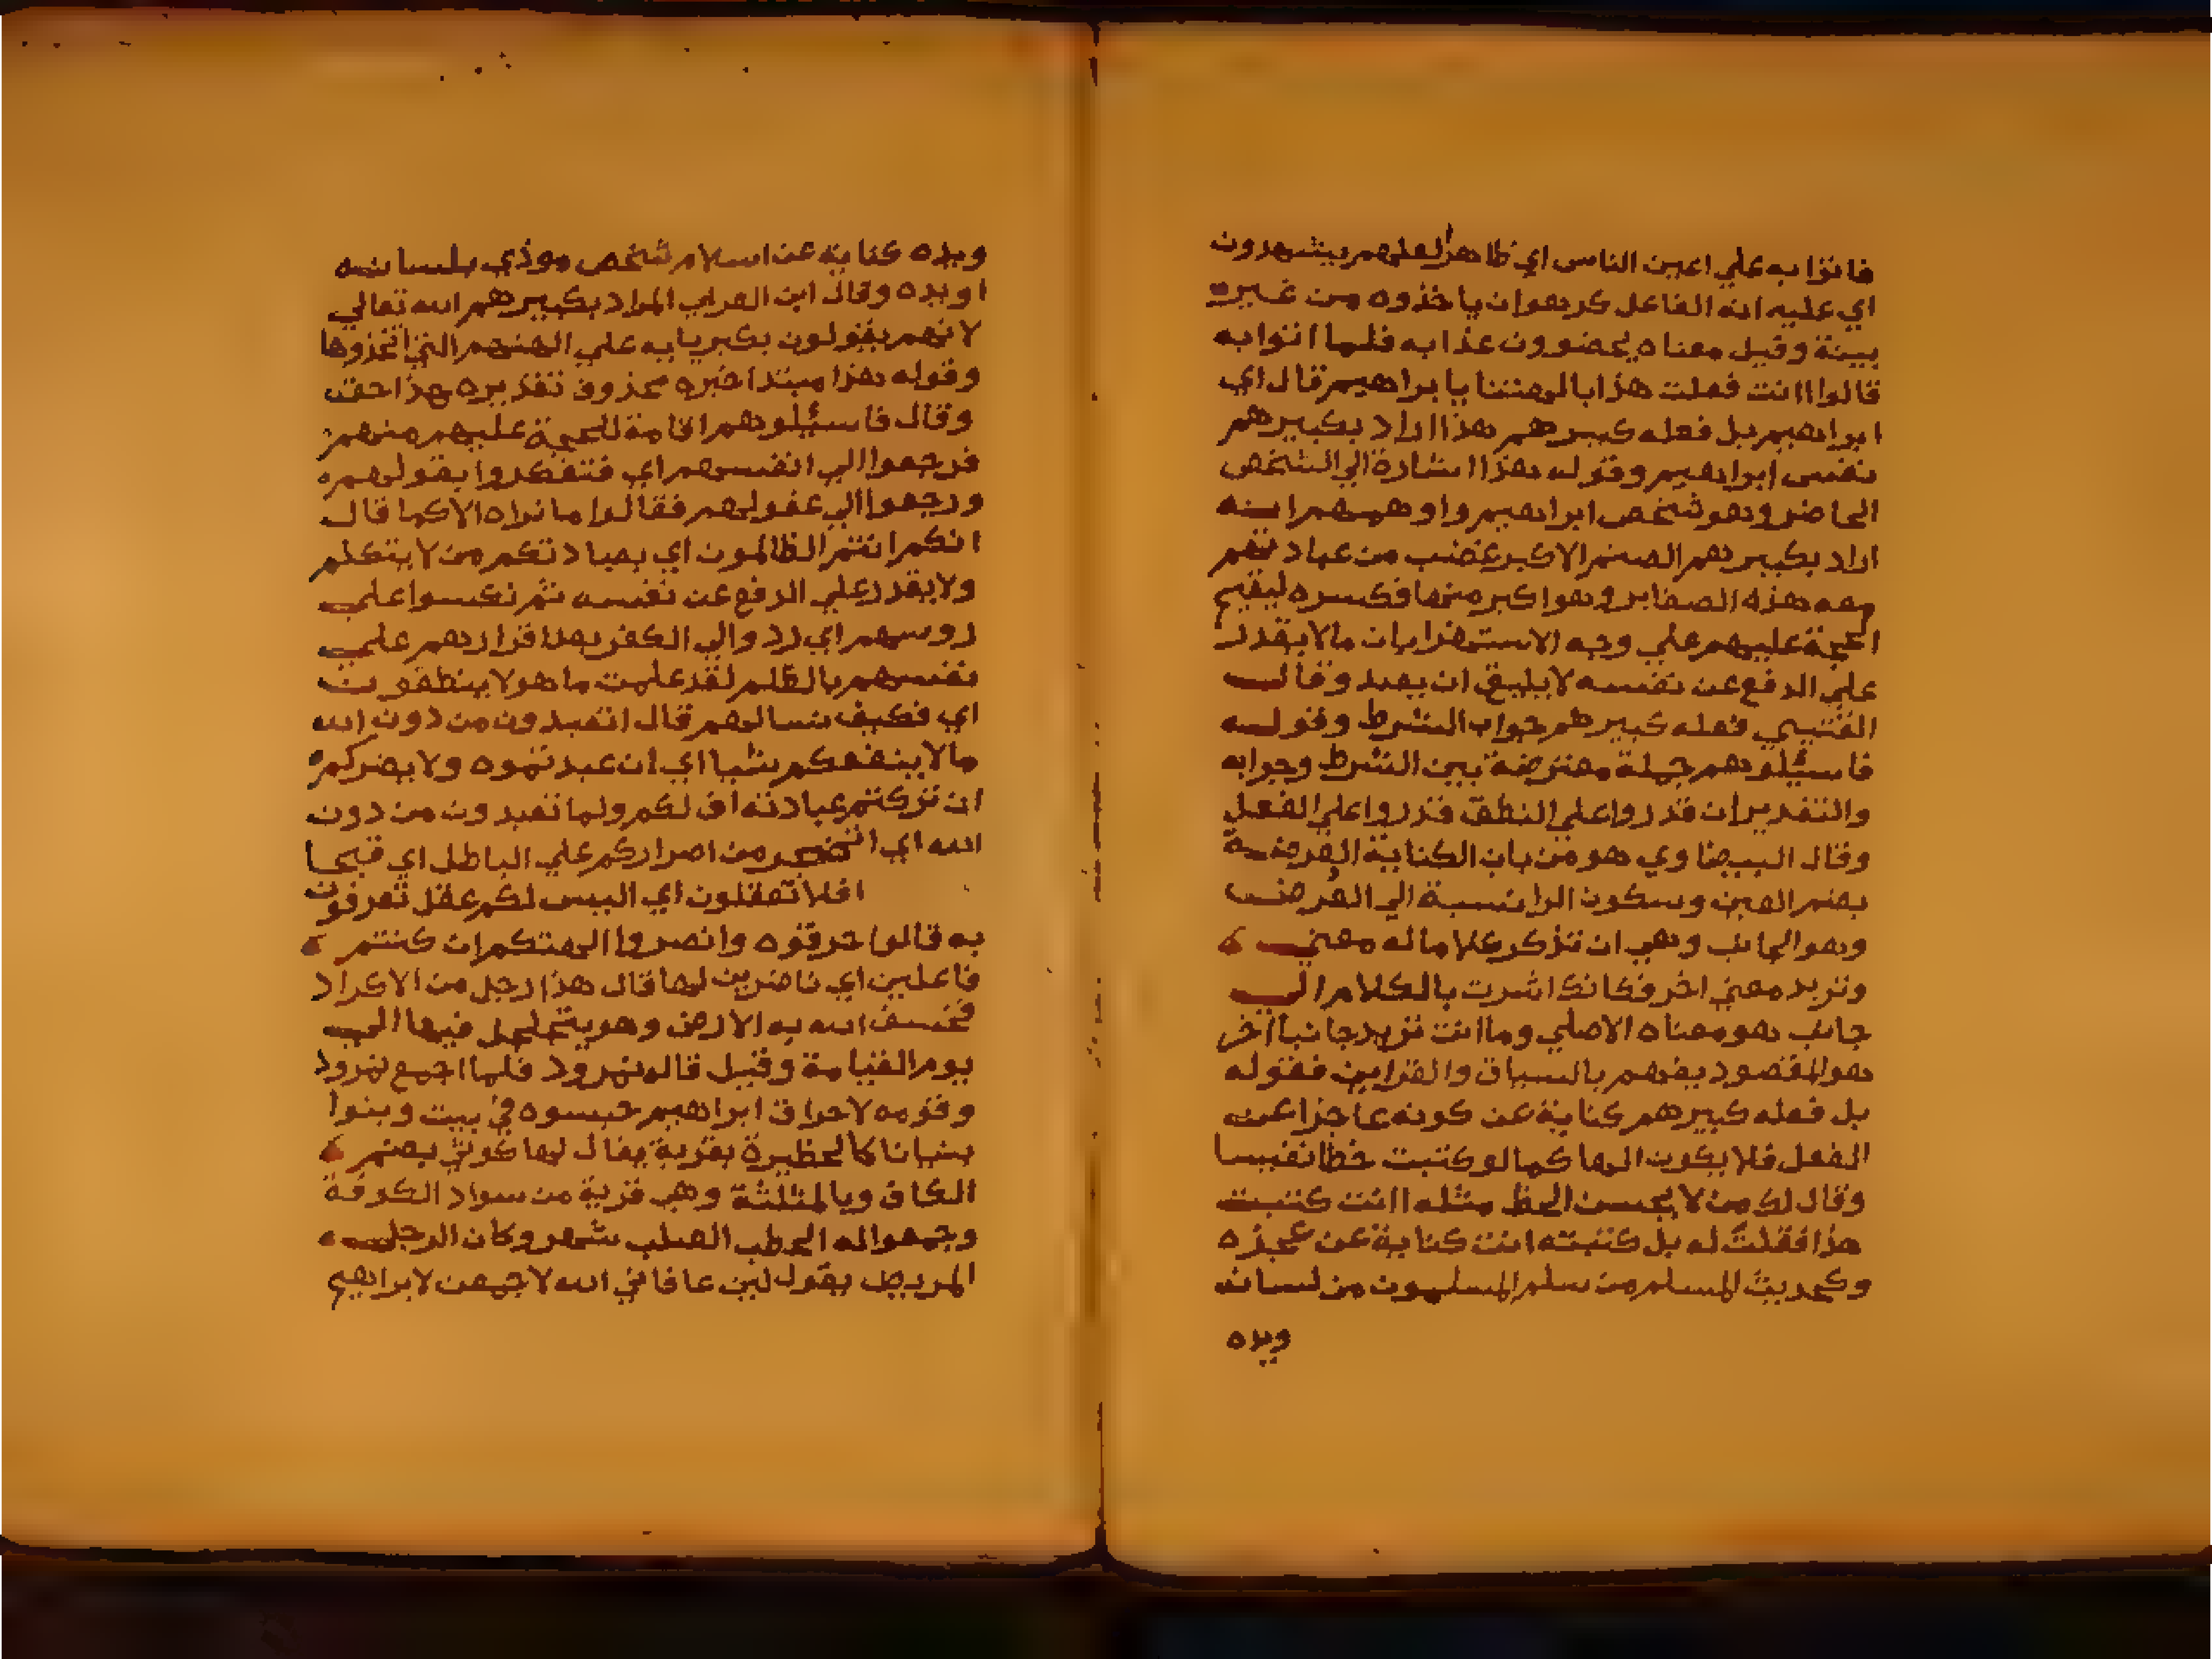 فاتوا به علي اعين الناس اي ظاهرا لعلهم يشهدون
اي عليه انه الفاعل كرهوا ان ياخذوه من غير
بينة وقيل معناه يحضرون عذابه فلما اتوا به
قالوا اانت فعلت هذا بالهتنا يا براهيم قال اي
ابراهيم بل فعله كبيرهم هذا اراد بكبيرهم
نفس ابراهيم وقوله هذا اشارة الي الشخص
الحاضر وهو شخص ابراهيم واوهمهم انه
اراد بكبيرهم الصنم الاكبر غضب من عبادتهم
معه هذه الصغاير وهو اكبر منها فكسره ليقيم
الحجة عليهم علي وجه الاستهزا بان مالا يقدر
علي الدفع عن نفسه لا يليق ان يعبد وقال
القتيبي فعله كبيرهم جواب الشرط وقوله
فاسئلوهم جملة معترضة بين الشرط وجوابه
والتقدير ان قدروا علي النطق قدروا علي الفعل
وقال البيضاوي هو من باب الكناية العرضية
بضم العين وسكون الرا نسبة الي العرض
وهو الجانب وهي ان تذكر كلاما له معني
وتريد معني اخر فكانك اشرت بالكلام الي
جانب هو معناه الاصلي وما انت تريد جانبا آخر
هو المقصود يفهم بالسياق والقراين فقوله
بل فعله كبيرهم كناية عن كونه عاجزا عن
الفعل فلا يكون الها كما لو كتبت خطا نفيسا
وقال لك من لا يحسن الخط مثله اانت كتبت
هذا فقلت له بل كتبته انت كناية عن عجزه
وكحديث المسلم من سلم المسلمون من لسانه
ويده
ويده كناية عن اسلام شخص موذي بلسانه
او يده وقال ابن العربي المراد بكبيرهم الله تعالي
لانهم يقولون بكبريايه علي الهتهم التي اتخذوها
وقوله هذا مبتدا خبره محذوف تقديره هذا حق
وقال فاسئلوهم اقامة للحجة عليهم منهم
فرجعوا الي انفسهم اي فتفكروا بقولهم
ورجعوا الي عقولهم فقالوا ما نراه الا كما قال
انكم انتم الظالمون اي بعبادتكم من لا يتكلم
ولا يقدر علي الدفع عن نفسه ثم نكسوا علي
روسهم اي ردوا الي الكفر بعد اقرارهم علي
نفسهم بالظلم لقد علمت ما هولا ينطقون
اي فكيف نسالهم قال اتعبدون من دون الله
مالا ينفعكم شيا اي ان عبدتموه ولا يضركم
ان تركتم عبادته اف لكم ولما تعبدون من دون
الله اي اتضجر من اصراركم علي الباطل اي قبحا
افلا تعقلون اي اليس لكم عقل تعرفون
به قالوا حرقوه وانصروا الهتكم ان كنتم
فاعلين اي ناصرين لها قال هذا رجل من الاكراد
فخسف الله به الارض وهو يتجلجل فيها الي
يوم القيامة وقيل قاله نمرود فلما اجمع نمرود
وقومه لاحراق ابراهيم حبسوه في بيت وبنوا
بنيانا كالحظيرة بقرية يقال لها كوثي بضم
الكاف وبالمثلثة وهي قرية من سواد الكوفة
وجمعوا له الحطب الصلب شهر وكان الرجل
المريض يقول لين عافاني الله لاجمعن لابراهيم